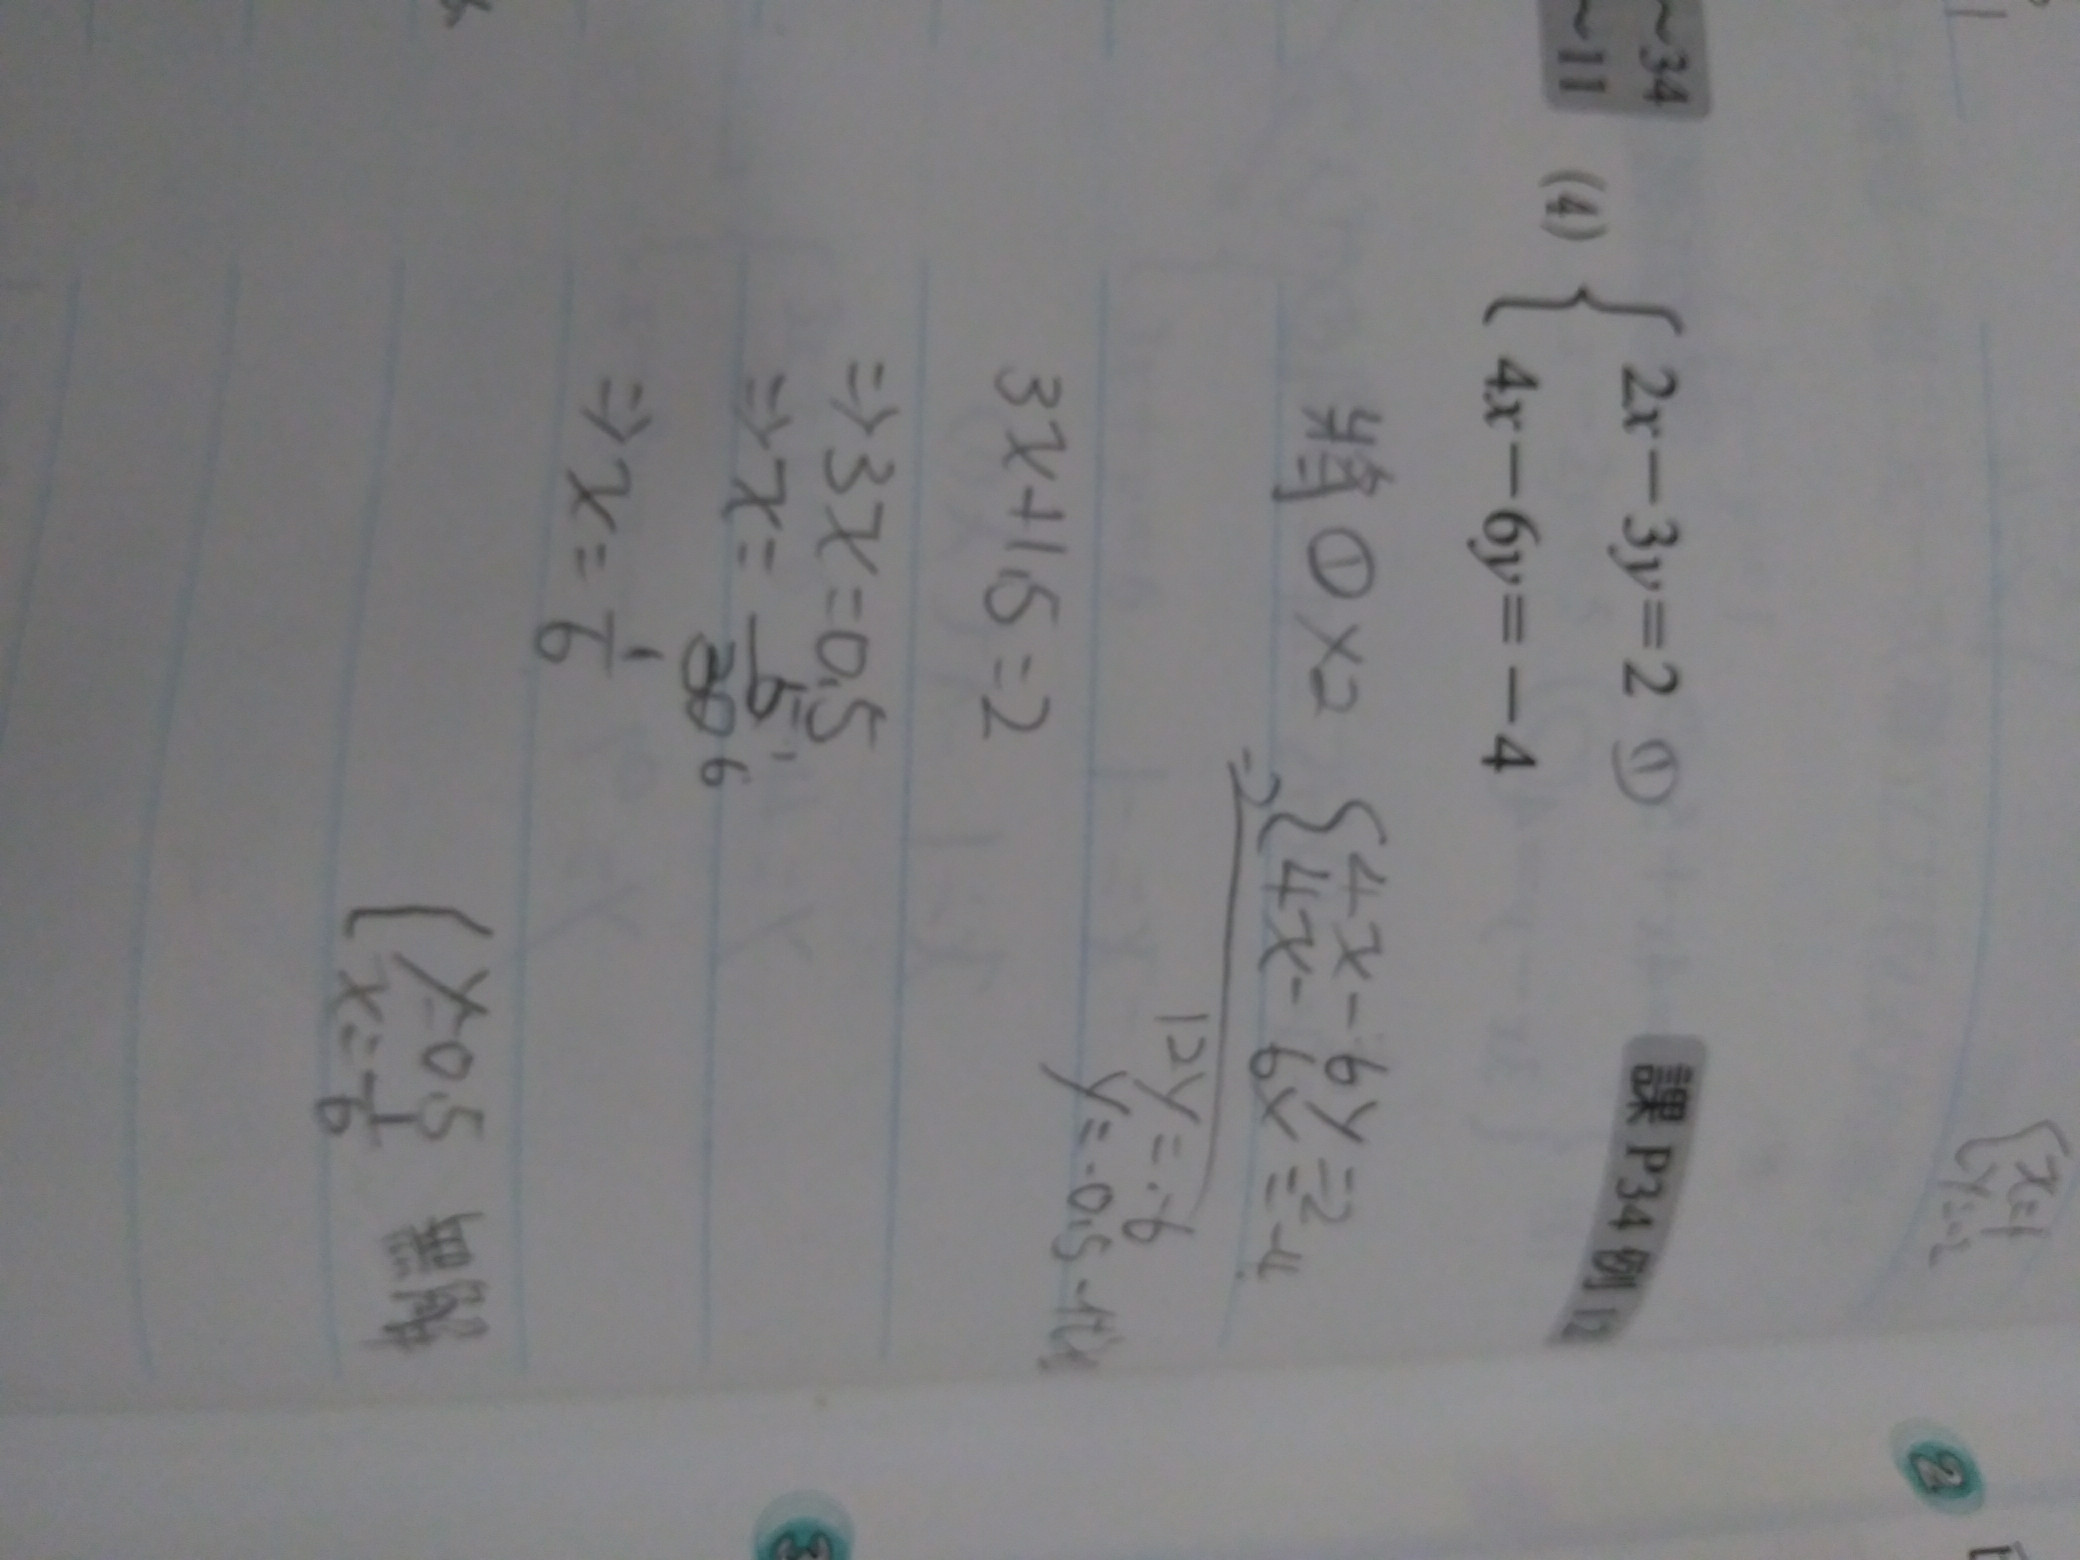 ~34
~11
(4) { 2x－3y=2 ①
4x－6y=－4
課 P34 例 12
將①×2
⇒ { 4x-6y=2
4x-6y=-4
12y=-6
y=-0.5
3x+1.5=2
⇒3x=0.5
⇒x=
⇒x=1/6
x=1/6
無解
{ x=1
2
3